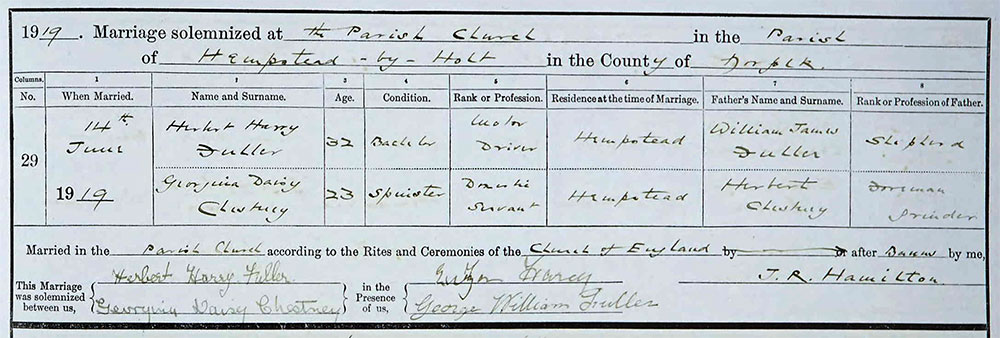 1919. Marriage solemnized at the Parish Church in the Parish
of Hempstead - by - Holt in the County of Norfolk.
Columns. 1 2 3 4 5 6 7 8
No. When Married. Name and Surname. Age. Condition. Rank or Profession. Residence at the time of Marriage. Father's Name and Surname. Rank or Profession of Father.
29
14th June 1919
Herbert Harry Fuller
32
Bachelor
Motor Driver
Hempstead
William James Fuller
Shepherd
Georgina Daisy Chestney
23
Spinster
Domestic Servant
Hempstead
Herbert Chestney
Grinder
Married in the Parish Church according to the Rites and Ceremonies of the Church of England by or after Banns by me,
This Marriage was solemnized between us,
Herbert Harry Fuller
Georgina Daisy Chestney
in the Presence of us,
George William Fuller
J. R. Hamilton